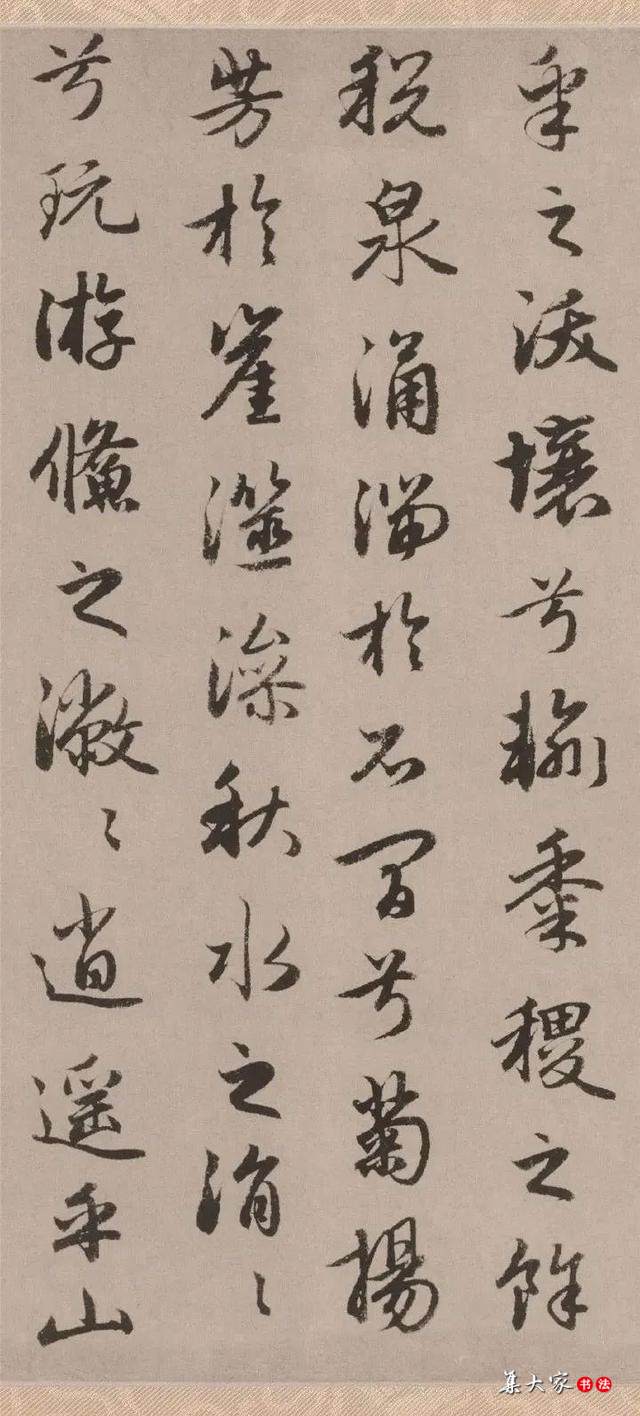 皋之沃壤兮輸黍稷之餘
税泉涌湍於石間兮菊揚
芳於崖澨澡秋水之涓〻
兮玩游鯈之潎〻逍遥乎山
集大家书法